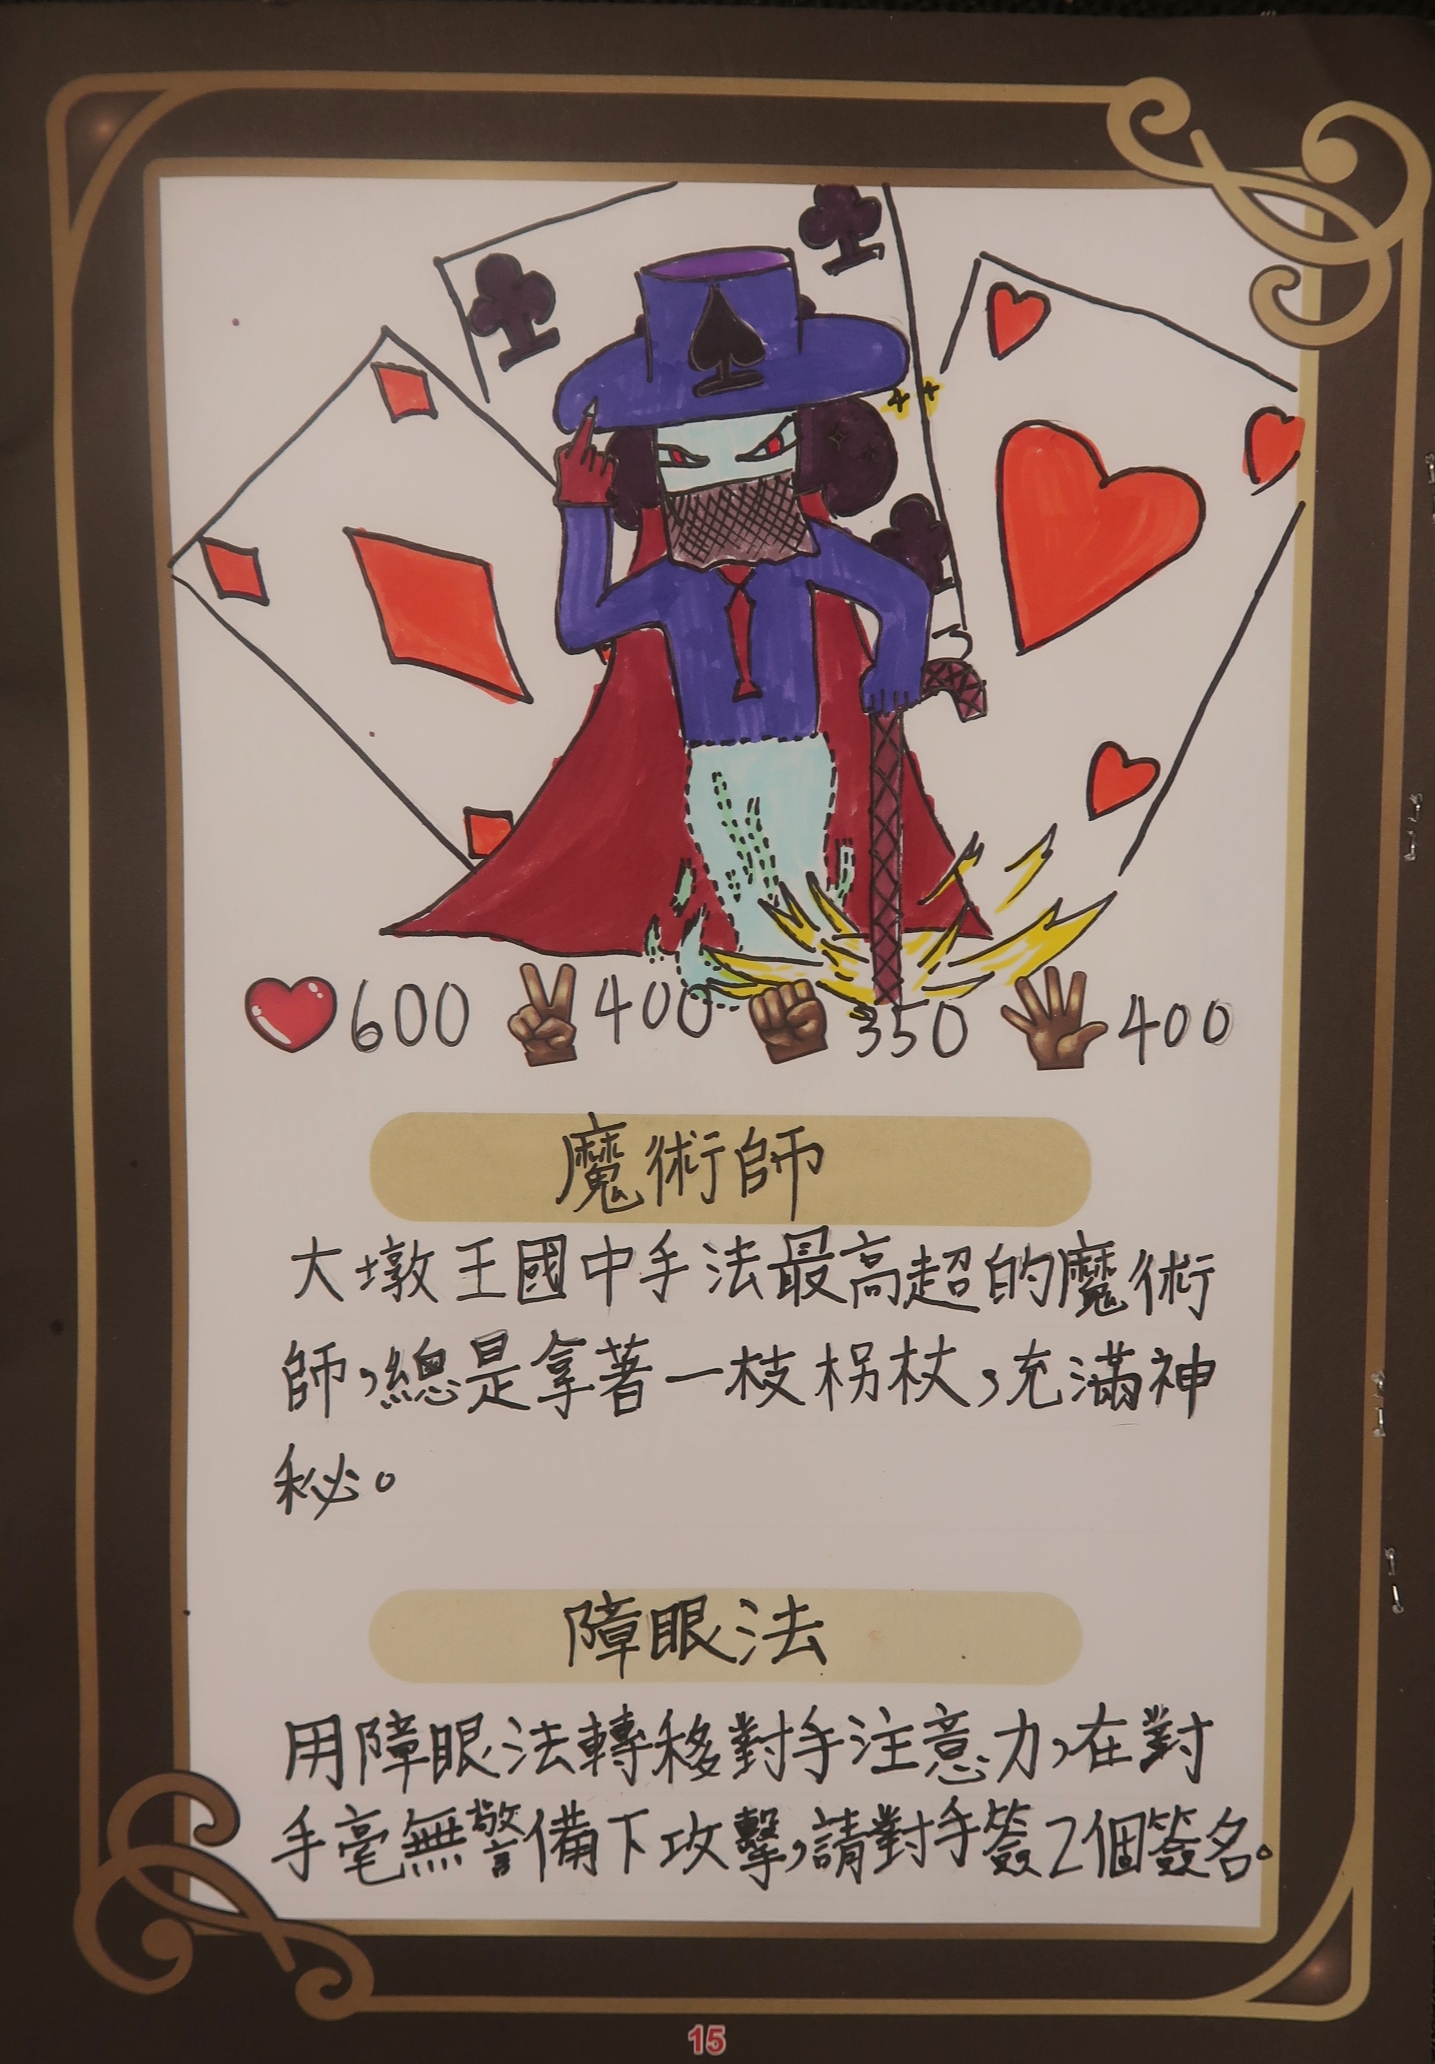 600 400 350 400
魔術師
大墩王國中手法最高超的魔術
師，總是拿著一枝柺杖，充滿神
秘。
障眼法
用障眼法轉移對手注意力，在對
手毫無警備下攻擊，請對手簽2個簽名。
15